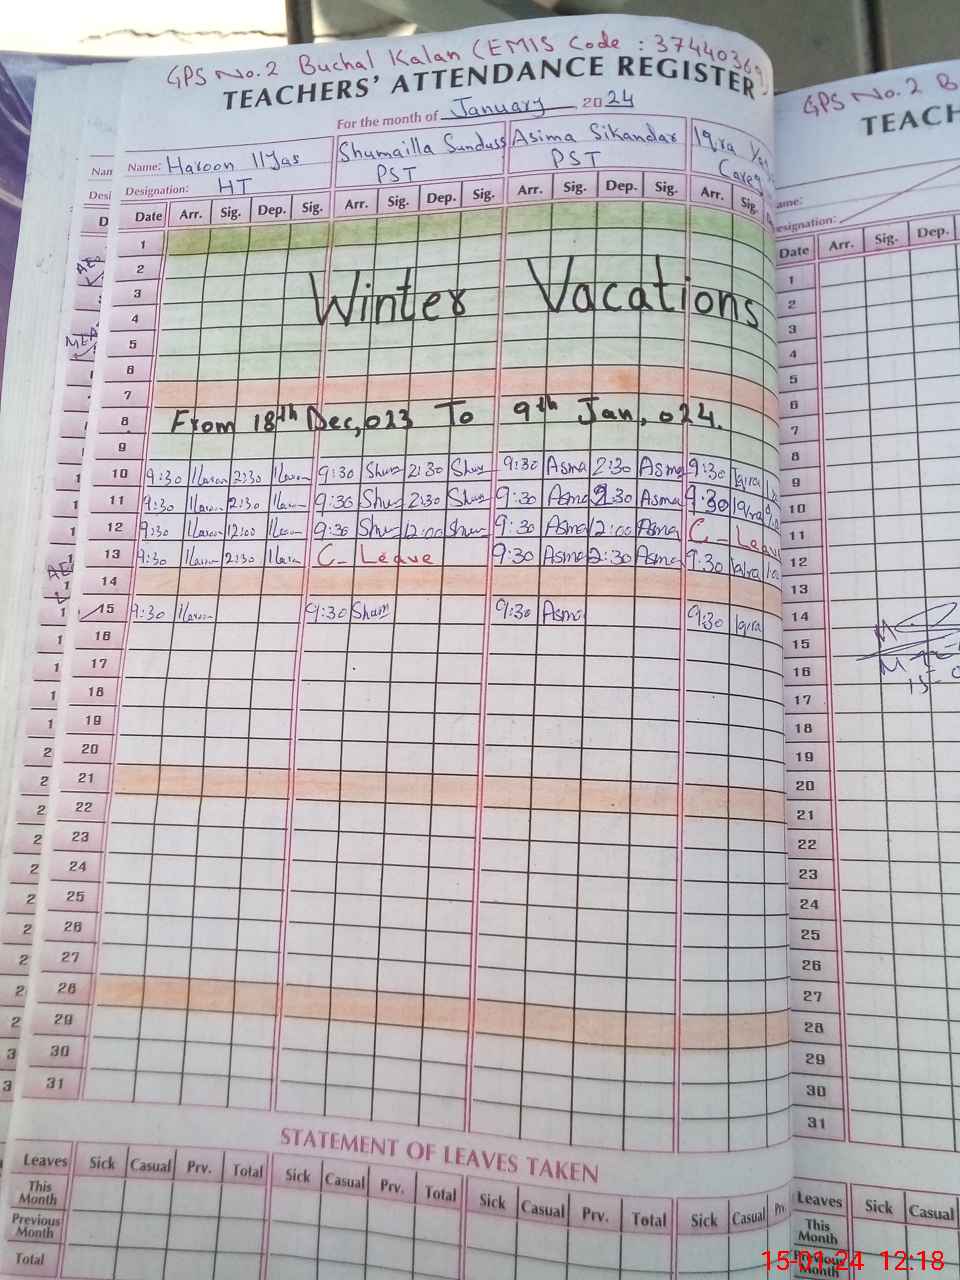 GPS No.2 Buchal Kalan (EMIS Code : 37440369)
TEACHERS' ATTENDANCE REGISTER
For the month of January 2024
Name: Haroon Ilyas Shumailla Sunduss Asima Sikandar Iqra
Designation: HT PST PST
Date Arr. Sig. Dep. Sig. Arr. Sig. Dep. Sig. Arr. Sig. Dep. Sig. Arr. Sig.
1
2
3
Winter Vacations
4
5
6
7
8 From 18th Dec,023 To 9th Jan,024.
9
10 9:30 Haroon 2:30 Haroon 9:30 Shum 2:30 Shum 9:30 Asma 2:30 Asma 9:30 Iqra
11 9:30 Haroon 2:30 Haroon 9:30 Shum 2:30 Shum 9:30 Asma 2:30 Asma 9:30 Iqra
12 9:30 Haroon 12:00 Haroon 9:30 Shum 12:00 Shum 9:30 Asma 12:00 Asma C - Leave
13 9:30 Haroon 2:30 Haroon C- Leave 9:30 Asma 2:30 Asma 9:30 Iqra
14
15 9:30 Haroon 9:30 Shum 9:30 Asma 9:30 Iqra
16
17
18
19
20
21
22
23
24
25
26
27
28
29
30
31
STATEMENT OF LEAVES TAKEN
Leaves Sick Casual Prv. Total Sick Casual Prv. Total Sick Casual Prv. Total Sick Casual Prv.
This Month
Previous Month
Total
GPS No. 2 B
TEACH
Date Arr. Sig. Dep.
1
2
3
4
5
6
7
8
9
10
11
12
13
14
15
16
17
18
19
20
21
22
23
24
25
26
27
28
29
30
31
Leaves Sick Casual
This Month
Previous Month
15-01-24 12:18